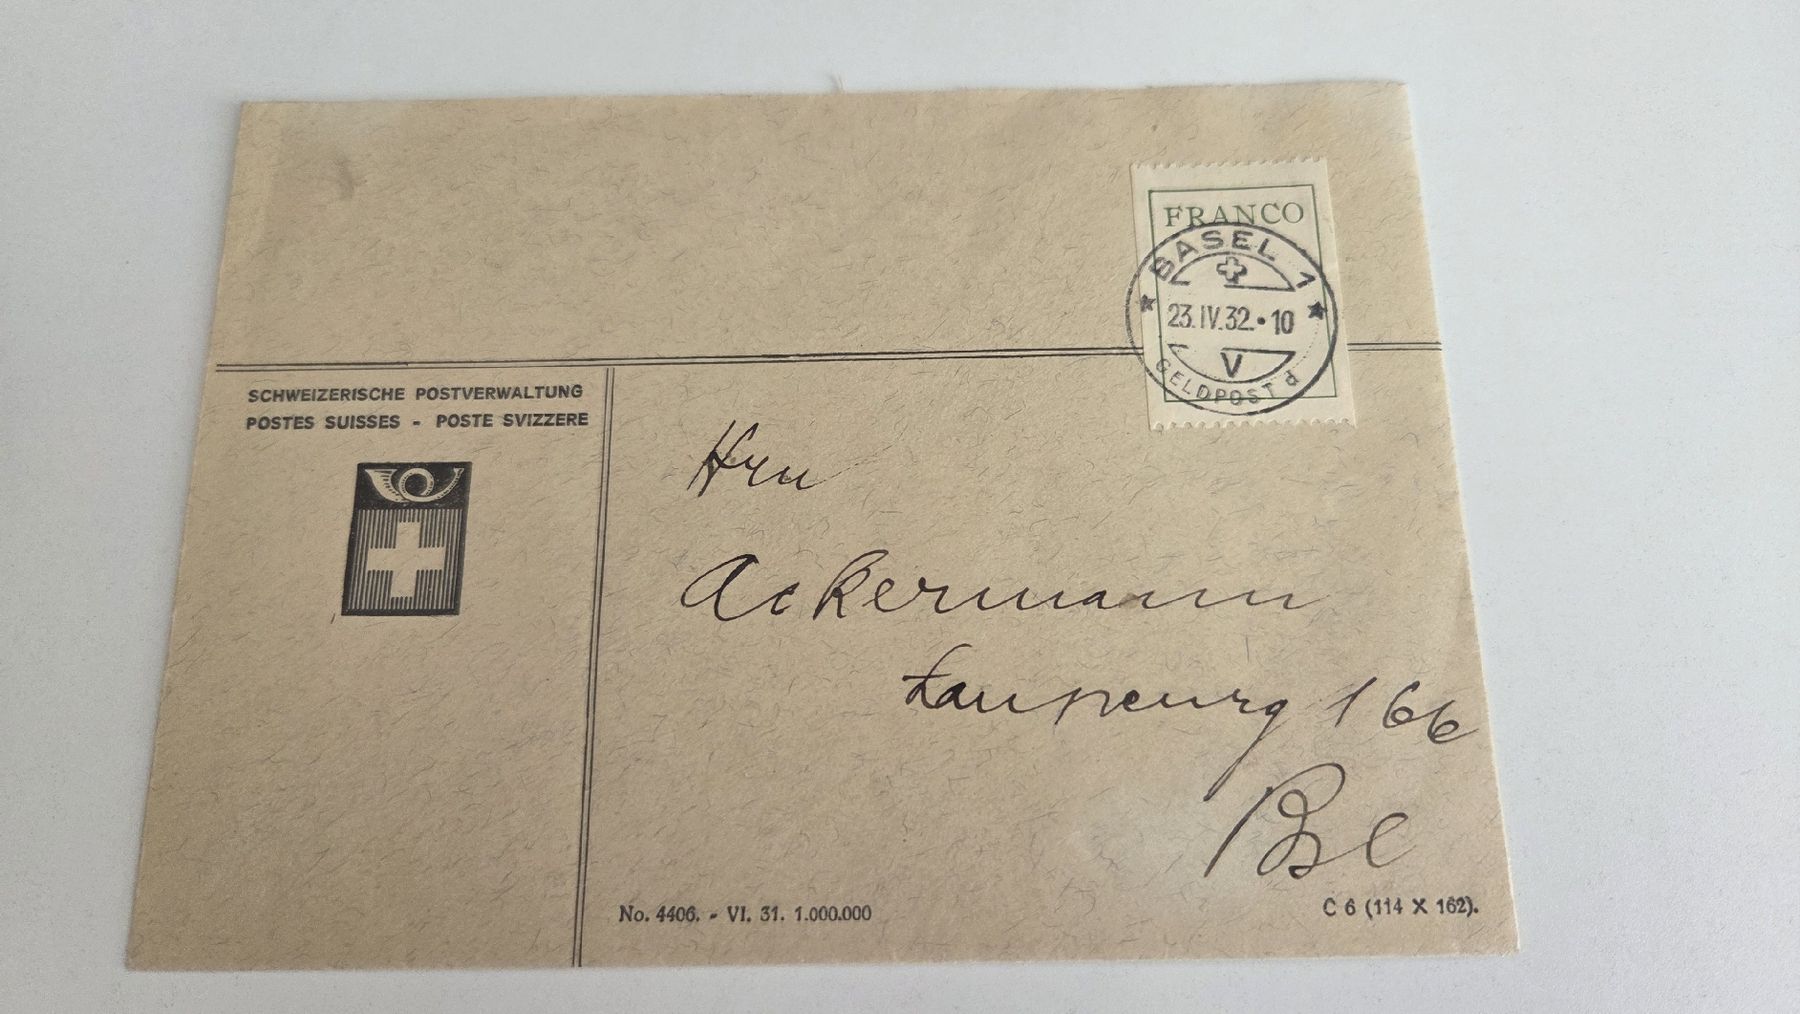 FRANCO
BASEL 1
23.IV.32.•10
V
GELDPOST d
SCHWEIZERISCHE POSTVERWALTUNG
POSTES SUISSES - POSTE SVIZZERE
Hrn
Ackermann
166
No. 4406. - VI. 31. 1.000.000
C 6 (114 X 162).